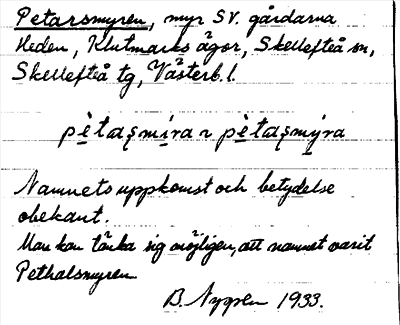 Petarsmyren, myr SV. gårdarna
Heden, Klutmarks ägor, Skellefteå sn,
Skellefteå tg, Västerb. l.
pètaʂmira ~ pètaʂmýra
Namnets uppkomst och betydelse
obekant.
Man kan tänka sig möjligen, att namnet varit
Pethalsmyren
B. Nygren 1933.